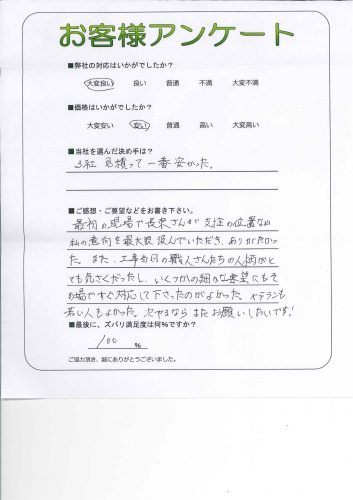 お客様アンケート
■弊社の対応はいかがでしたか？
大変良い 良い 普通 不満 大変不満
■価格はいかがでしたか？
大変安い 安い 普通 高い 大変高い
■当社を選んだ決め手は？
3社見積って一番安かった。
■ご感想・ご要望などをお書き下さい。
最初の現場で長東さんが支柱の位置など
私の意向を最大限汲んでいただき、ありがたかっ
た。また、工事当日の職人さんたちの人柄がと
ても気さくだったし、いくつかの細かな要望にもそ
の場ですぐ対応して下さったのがよかった。ベテランも
若い人もよかった。次やるならまたお願いしたいです!
■最後に、ズバリ満足度は何%ですか？
100 %
ご協力頂き、誠にありがとうございました。